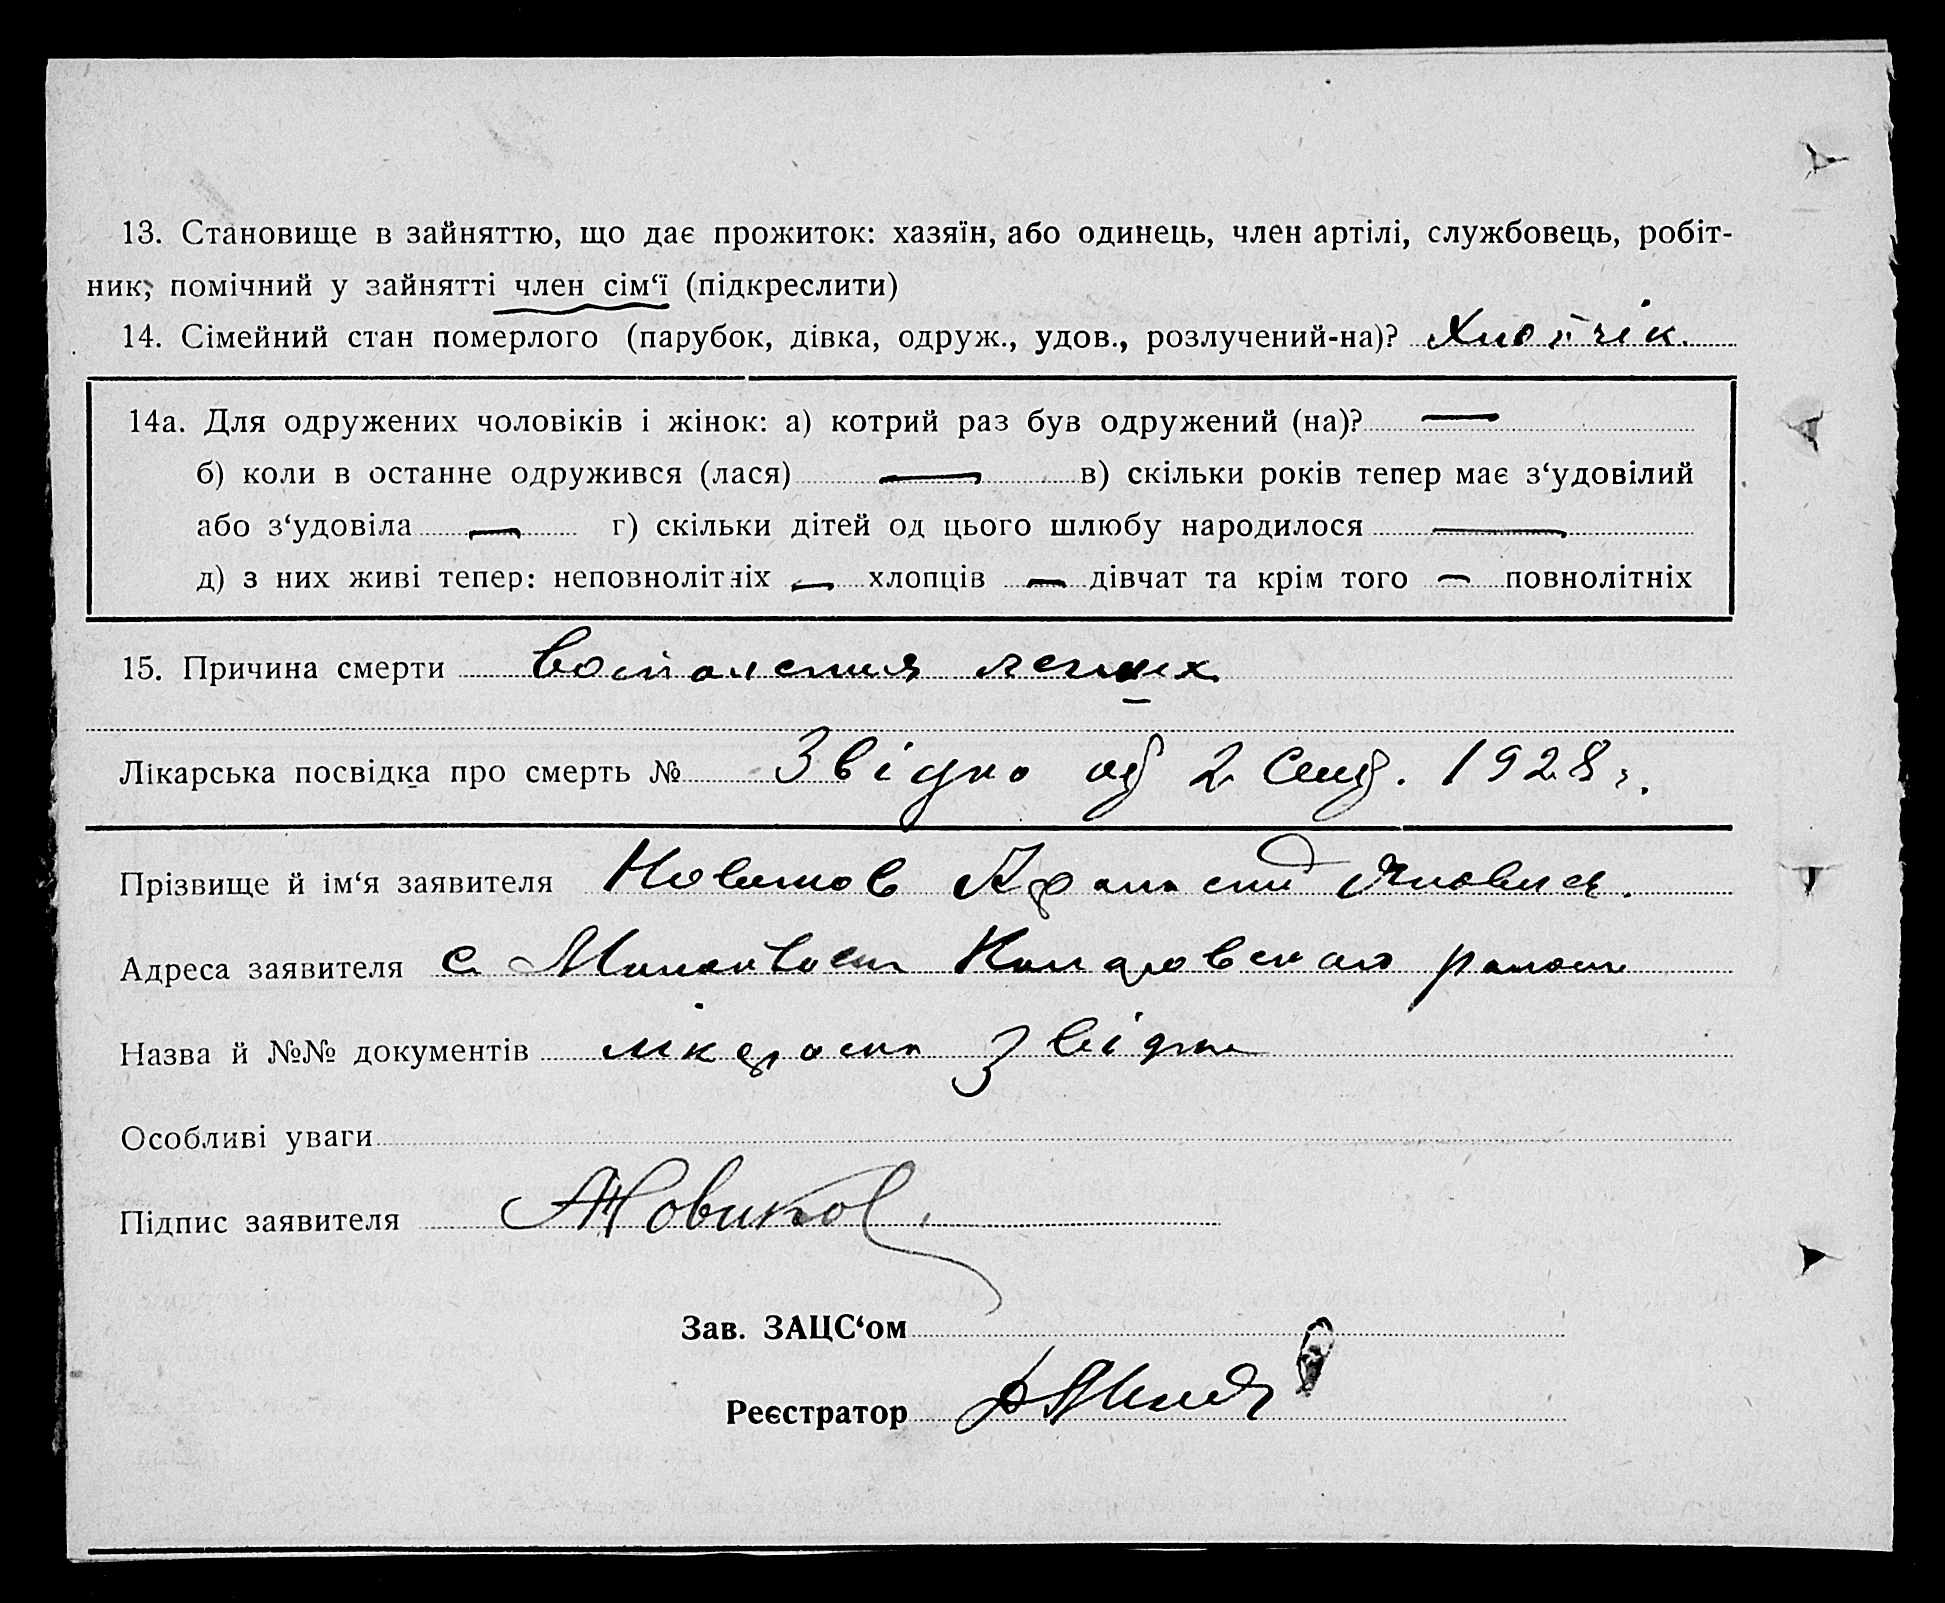 13. Становище в зайняттю, що дає прожиток: хазяїн, або одинець, член артілі, службовець, робіт-
ник, помічний у зайнятті член сім‘ї (підкреслити)
14. Сімейний стан померлого (парубок, дівка, одруж., удов., розлучений-на)? Хлопчік.
14а. Для одружених чоловіків і жінок: а) котрий раз був одружений (на)? —
б) коли в останнє одружився (лася) — в) скільки років тепер має з‘удовілий
або з‘удовіла — г) скільки дітей од цього шлюбу народилося —
д) з них живі тепер: неповнолітніх — хлопців — дівчат та крім того — повнолітніх
15. Причина смерти воспаления легких
Лікарська посвідка про смерть № Звідка од 2 1928 г.
Прізвище й ім‘я заявителя Новиков Яковлев.
Адреса заявителя с. района
Назва й №№ документів лікарська звідка
Особливі уваги
Підпис заявителя АНовиков
Зав. ЗАЦС‘ом
Реєстратор